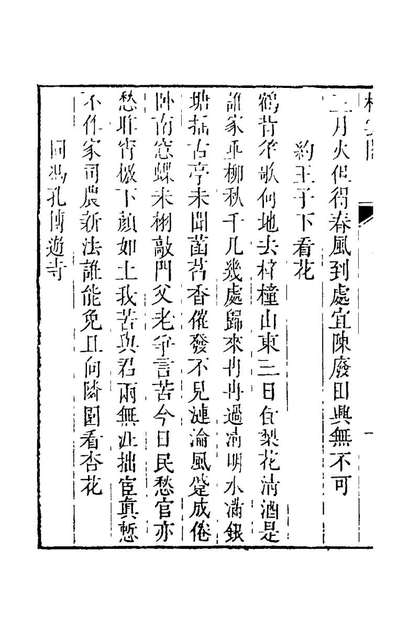 二月火但得春風到處宜陳廢田與無不可
約王子下看花
鶴背笙歌何地去梓橦山東三日負梨花清酒是
誰家垂柳秋千几幾處歸來冉冉過清明水滿銀
塘擂古亭未聞菡萏香催發不見漣淪風蹙成倦
卧南窓蝶未栩敲門父老爭言苦今日民愁官亦
愁堦下顔如土我苦與君兩無涯拙宦真慙
不作家司農新法誰能免且向隣園看杏花
同馮孔博遊寺